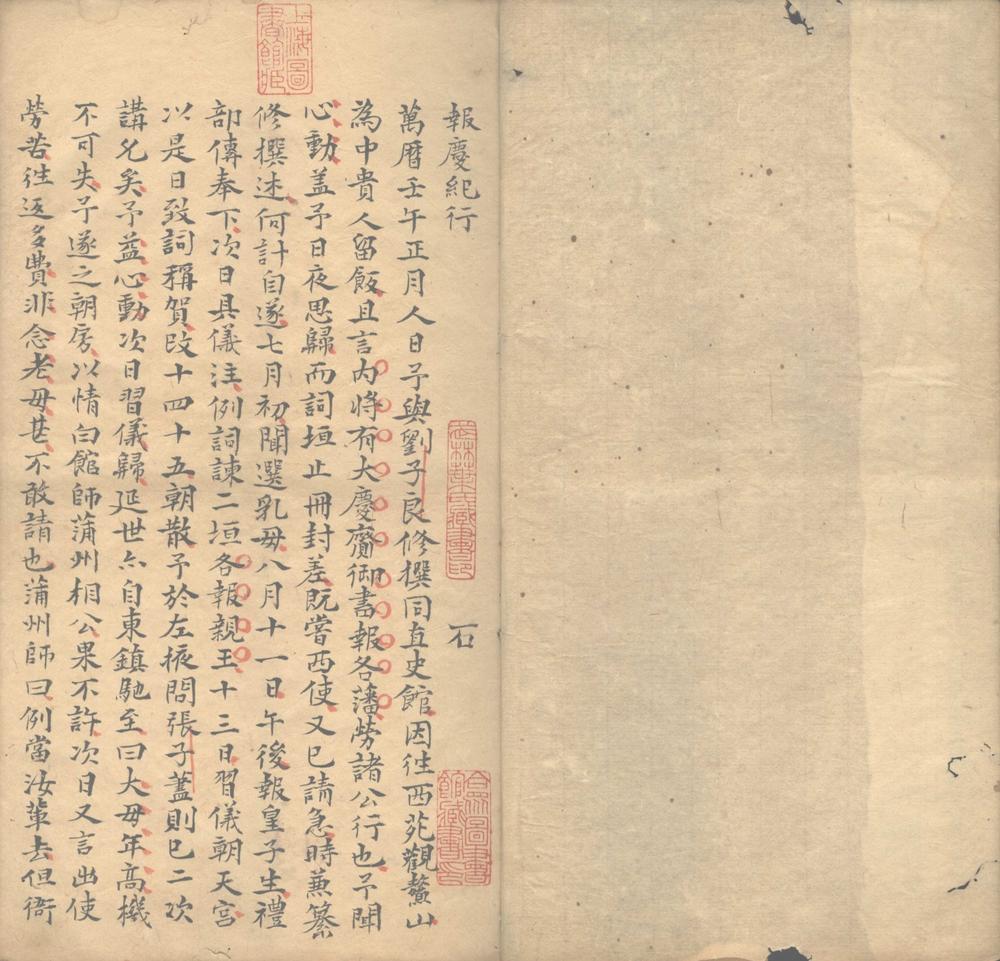 報慶紀行
石
萬曆壬午正月人日予與劉子良修撰同直史館因往西苑觀鰲山
為中貴人留飯且言內將有大慶齎御書報各藩勞諸公行也予聞
心動蓋予日夜思歸而詞垣止冊封差既嘗西使又已請急時兼纂
修撰述何計自遂七月初聞選乳母八月十一日午後報皇子生禮
部傳奉下次日具儀注例詞諫二垣各報親王十三日習儀朝天宮
以是日致詞稱賀改十四十五朝散予於左掖問張子藎則已二次
講允矣予益心動次日習儀歸延世亦自東鎮馳至曰大母年高機
不可失予遂之朝房以情白館師蒲州相公果不許次日又言出使
勞苦往返多費非念老母甚不敢請也蒲州師曰例當汝輩去但衙
上海圖書館藏
武林葉氏藏書印
合眾圖書館藏書印